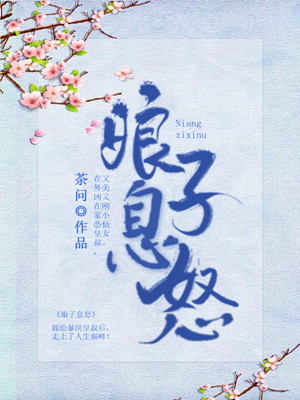 娘子息怒
Niang
zixinu
茶问◎作品
又美又刚小仙女，
在外凶在家怂皇叔。
《娘子息怒》
嫁给暴戾皇叔后，
走上了人生巅峰！